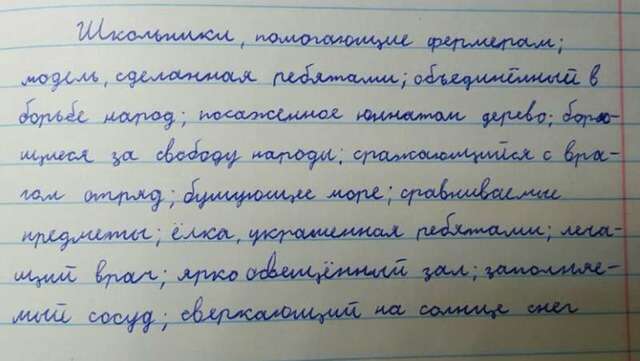 Школьники, помогающие фермерам;
модель, сделанная ребятами; объединённый в
борьбе народ; посаженное юннатом дерево; борю-
щиеся за свободу народы; сражающийся с вра-
гом отряд; бушующее море; сравниваемые
предметы; ёлка, украшенная ребятами; леча-
щий врач; ярко освещённый зал; заполняе-
мый сосуд; сверкающий на солнце снег